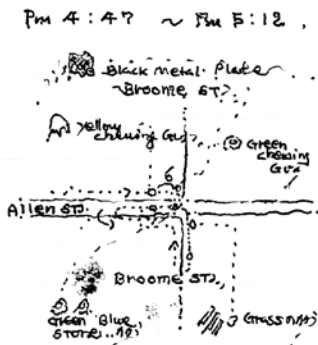 Pm 4:47 ~ Pm 5:12.
Black Metal Plate
Broome ST.
Yellow
chewing Gum
Green
chewing
Gum
6
Allen ST.
Broome ST.
Green Blue
STONE
Grass